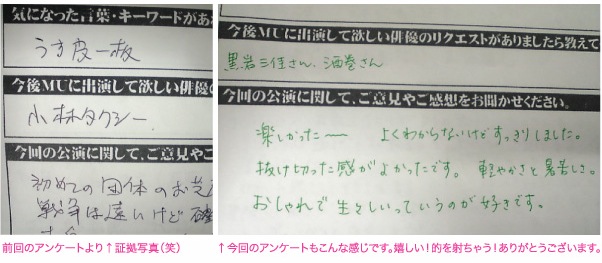 気になった言葉・キーワードがあ
うす皮一枚
今後MUに出演して欲しい俳優の
小林タクシー
今回の公演に関して、ご意見やご
初めての団体のお芝
戦争は遠いけど
今後MUに出演して欲しい俳優のリクエストがありましたら教えて
黒岩三佳さん、酒巻さん
今回の公演に関して、ご意見やご感想をお聞かせください。
楽しかった〜 よくわからないけどすっきりしました。
抜け切った感がよかったです。 軽やかさと暑苦しさ。
おしゃれで生々しいっていうのが好きです。
前回のアンケートより↑証拠写真(笑)
↑今回のアンケートもこんな感じです。嬉しい!的を射ちゃう!ありがとうございます。